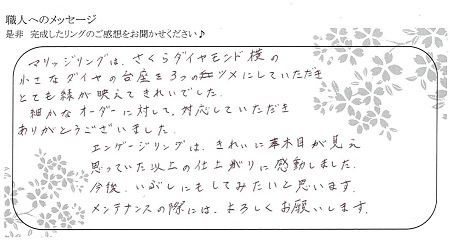 職人へのメッセージ
是非 完成したリングのご感想をお聞かせください♪
マリッジリングは、さくらダイヤモンド横の
小さなダイヤの台座を3つの紅ツメにしていただき
とても緑が映えてきれいでした。
細かなオーダーに対して、対応していただき
ありがとうございました。
エンゲージリングは、きれいに木目が見え
思っていた以上の仕上がりに感動しました。
今後、いぶしにもしてみたいと思います。
メンテナンスの際には、よろしくお願いします。